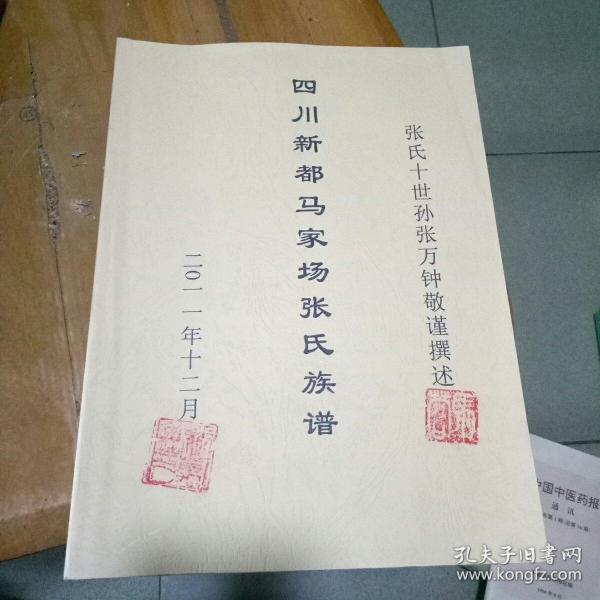 张氏十世孙张万钟敬谨撰述
四川新都马家场张氏族谱
二〇一一年十二月
中国中医药报
通讯
孔夫子旧书网
www.kongfz.com